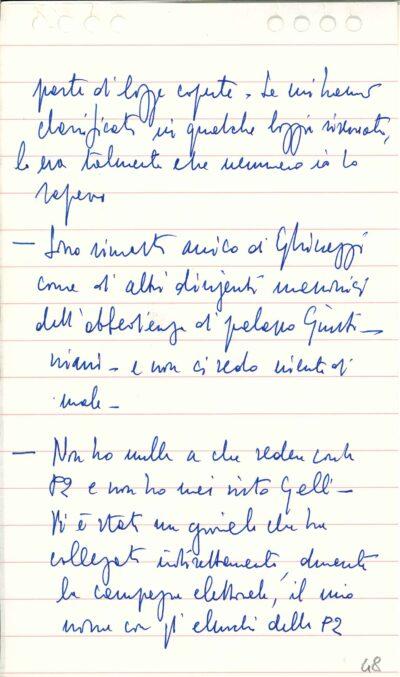 parte di logge coperte. Se mi hanno
classificato in qualche loggia riservata,
lo era talmente che nemmeno io lo
sapevo
— Sono rimasto amico di Ghinazzi
come di altri dirigenti massonici
dell'obbedienza di palazzo Giusti-
niani - e non ci vedo niente di
male -
— Non ho nulla a che vedere con la
P2 e non ho mai visto Gelli -
Vi è stato un giornale che ha
collegato indirettamente, durante
la campagna elettorale, il mio
nome con gli elenchi della P2
48